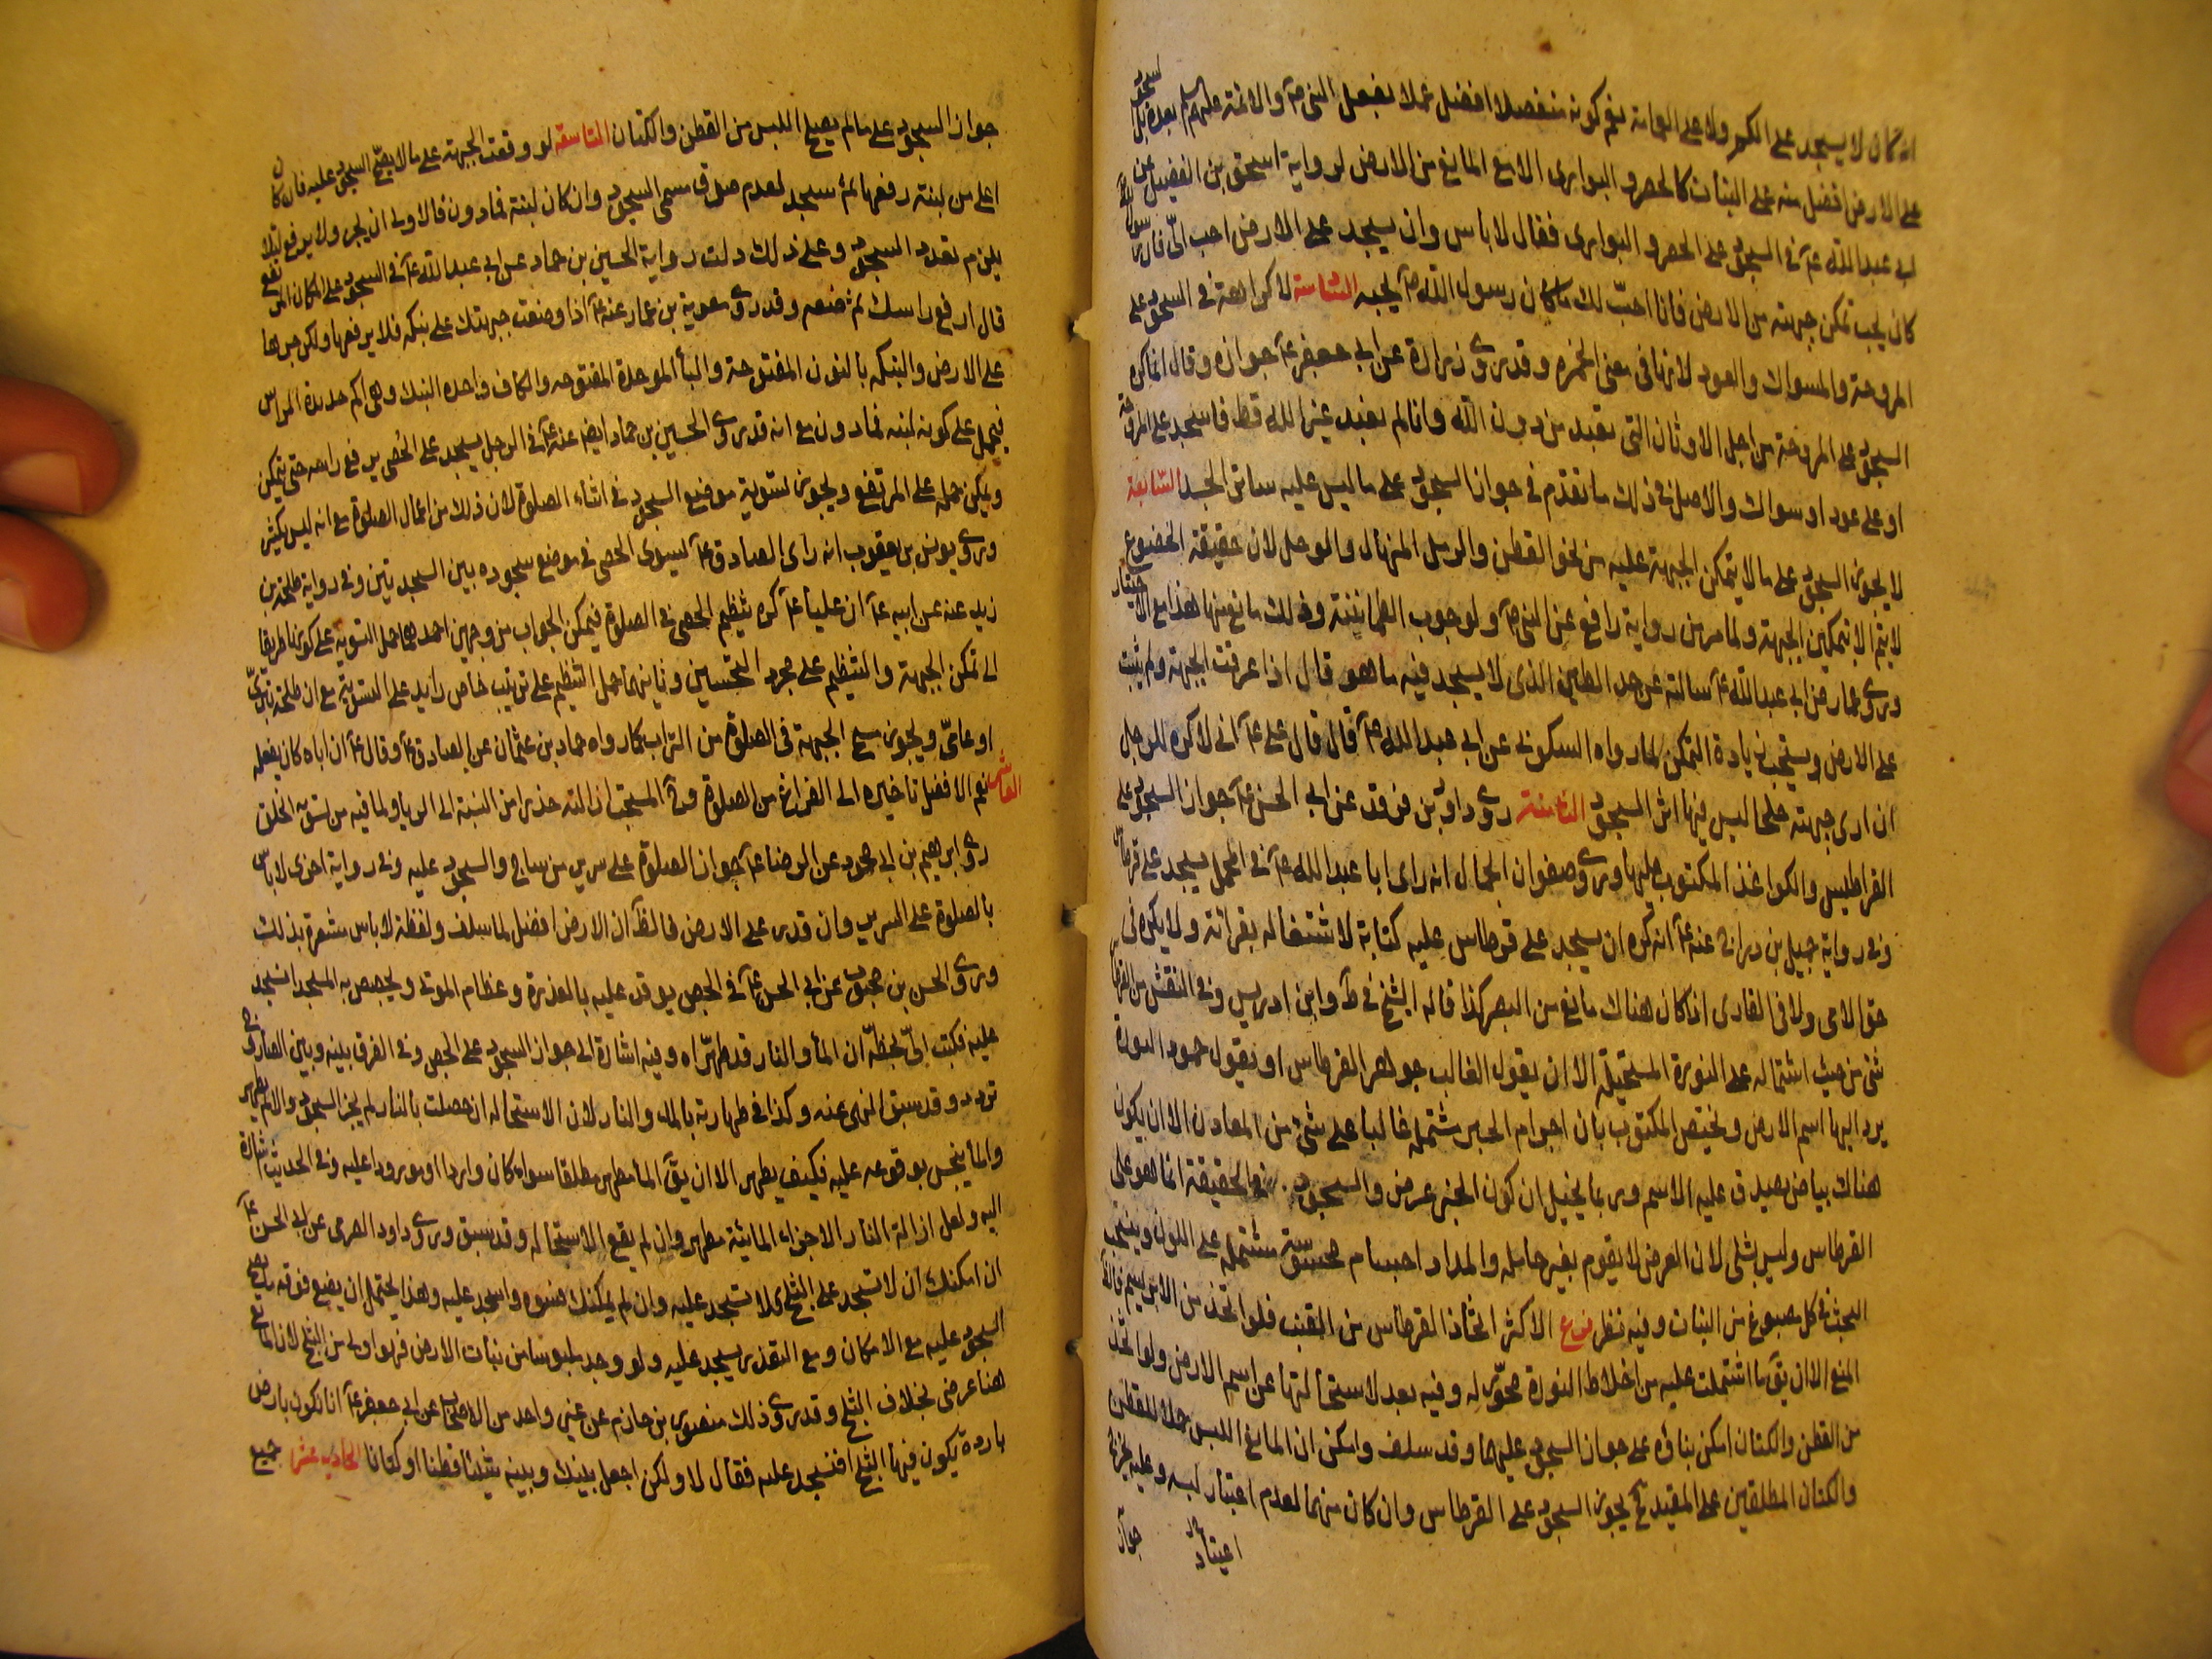 ان كان لا يسجد على الكم ولا على العمامة نعم كونه منفصلا افضل عملا بفعل النبي ص والائمة عليهم السلم بعده بل السجود
على الارض افضل منه على النبات كالحصر والبواري الا مع المانع من الارض لرواية اسحق بن الفضيل عن
ابي عبد الله ع في السجود على الحصر والبواري فقال لا باس وان يسجد على الارض احب الي فان رسول الله
كان يحب تمكن جبهته من الارض فانا احبّ لك ما كان رسول الله ص يحبه السادسة لا كراهة في السجود على
المروحة والمسواك والعود لانها في معنى الخمرة وقد روى زرارة عن ابي جعفر ع جوازه وقال انما كره
السجود على المروحة من اجل الاوثان التي تعبد من دون الله وانا لم نعبد غير الله قط فاسجد على المروحة
او على عود او سواك والاصل في ذلك ما تقدم في جواز السجود على ما ليس عليه سائر الجسد السابعة
لا يجوز السجود على ما لا يتمكن الجبهة عليه من نحو القطن والرمل المنهال والوحل لان حقيقة الخضوع
لا يتم الا بتمكين الجبهة ولما مر من رواية رافع عن النبي ص ولوجوب الطمانينة وذلك مانع منها هذا مع الاختيار
وروى عمار عن ابي عبد الله ع سالته عن حد الطين الذي لا يسجد فيه ما هو قال اذا غرقت الجبهة ولم تثبت
على الارض ويستحب زيادة التمكن لما رواه السكوني عن ابي عبد الله ع قال قال علي ع اني لاكره للرجل
ان ارى جبهته جلحا ليس فيها اثر السجود الثامنة روى داود بن فرقد عن ابي الحسن ع جواز السجود على
القراطيس والكواغذ المكتوب عليها وروى صفوان الجمال انه راى ابا عبد الله ع في المحمل يسجد على قرطاس
وفي رواية جميل بن دراج عنه ع انه كره ان يسجد على قرطاس عليه كتابة لاشتغاله بقرائته ولا يكره في
حق الامي ولا في القاري اذا كان هناك مانع من البصر كذا قاله الشيخ في ط وابن ادريس وفي النفس من القرطاس
شئ من حيث اشتماله على النورة المستحيلة الا ان يقول الغالب جوهر القرطاس او نقول جمود النورة
يرد اليها اسم الارض ويختص المكتوب بان اجرام الحبر مشتملة غالبا على شئ من المعادن الا ان يكون
هناك بياض يصدق عليه الاسم وربما يخيل ان كون الحبر عرض والسجود في الحقيقة انما هو على
القرطاس وليس بشئ لان العرض لا يقوم بغير حامله والمداد اجسام محسوسة مشتملة على اللون وينسحب
البحث في كل مصبوغ من النبات وفيه نظر فرع الاكثر اتخاذ القرطاس من القنب فلو اتخذ من الابريسم فالظ
المنع الا ان يق ما اشتملت عليه من اخلاط النورة مجوّز له وفيه بعد لاستحالتها عن اسم الارض ولو اتخذ
من القطن والكتان امكن بناؤه على جواز السجود عليهما وقد سلف وامكن ان المانع اللبس حملا للقطن
والكتان المطلقين على المقيد فح يجوز السجود على القرطاس وان كان منهما لعدم اعتبار لبسه وعليه يخرج
جواز
جواز السجود على ما لم يصلح اللبس من القطن والكتان التاسعة لو وقعت الجبهة على ما لا يصح السجود عليه فان كان
اعلى من لبنة رفعها ثم سجد لعدم صدق مسمى السجود وان كان لبنة فما دون فالاولى ان يجر ولا يرفع لئلا
يلزم تعدد السجود وعلى ذلك دلت رواية الحسين بن حماد عن ابي عبد الله ع في السجود على المكان المرتفع
قال ارفع راسك ثم ضعه وقد روى معوية بن عمار عنه ع اذا وضعت جبهتك على نبكة فلا يرفعها ولكن جرها
على الارض والنبكة بالنون المفتوحة والبأ الموحدة المفتوحه والكاف واحده النبك وهي اكم حديدة الراس
فيحمل على كونه لبنه فما دون مع انه قد روى الحسين بن حماد ايضا عنه ع في الرجل يسجد على الحصى يرفع راسه حتى يتمكن
ويمكن حمله على المرتفع ويجوز تسوية موضع السجود في اثناء الصلوة لان ذلك من افعال الصلوة مع انه ليس بكثير
وروى يونس بن يعقوب انه راى الصادق ع يسوى الحصى في موضع سجوده بين السجدتين وفي رواية طلحة بن
زيد عنه عن ابيه ع ان عليا ع كره تنظيم الحصى في الصلوة فيمكن الجواب من وجهين احدهما حمل التسوية على كونها طريقا
الى تمكن الجبهة والتنظيم على مجرد التحسين وثانيهما حمل التنظيم على ترتيب خاص زايد على التسوية مع ان طلحة بتريّ
او عاميّ ويجوز مسح الجبهة في الصلوة من التراب كما رواه حماد بن عثمان عن الصادق ع وقال ع ان اباه كان يفعله
نعم الافضل تاخيره الى الفراغ من الصلوة المستحب ازالته حذرا من النسبة الى الريا ولما فيه من تشويه الخلق العاشرة
روى ابرهيم بن ابي محمود عن الرضا ع جواز الصلوة على سرير من ساج والسجود عليه وفي رواية اخرى لا باس
بالصلوة على السرير وان قدر على الارض فالظ ان الارض افضل لما سلف ولفظة لا باس مشعرة بذلك
وروى الحسن بن محبوب عن ابي الحسن ع في الجص يوقد عليه بالعذرة وعظام الموتى ويجصص به المسجد ايسجد
عليه فكتب اليّ بخطه ان المأ والنار قد طهّراه وفيه اشارة الى جواز السجود على الجص وفي الفرق بينه وبين الصاروج
تردد وقد سبق النهى عنه وكذا في طهارته بالماء والنار لان الاستحاله ان حصلت بالنار لم يجز السجود والا لم يطهر
والمأ ينجس بوقوعه عليه فكيف يطهر الا ان يق المأ مطهر مطلقا سواء كان واردا او مورودا عليه وفي الحديث اشارة
اليه ولعل ازالة النار الاجزاء المائية مطهر وان لم يقع الاستحاله وقد سبق وروى داود الصرمى عن ابي الحسن ع
ان امكنك ان لا تسجد على الثلج فلا تسجد عليه وان لم يمكنك فسوه واسجد عليه وهذا يحتمل ان يضع فوقه ما يصح
السجود عليه مع الامكان ومع التعذر يسجد عليه ولو وجد ملبوسا من نبات الارض فهو اولى من الثلج لان المانع
هنا عرضى بخلاف الثلج وقد روى ذلك منصور بن حازم عن غير واحد من الاصحاب عن ابي جعفر ع انا نكون بارض
باردة يكون فيها الثلج افنسجد عليه فقال لا ولكن اجعل بينك وبينه شيئا قطنا او كتانا الحادية عشر جميع